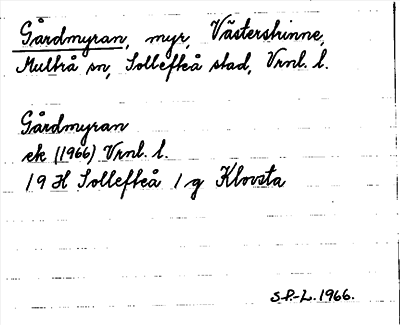 Gårdmyran, myr, Västerskinne,
Multrå sn, Sollefteå stad, Vrnl. l.
Gårdmyran
ek (1966) Vrnl. l.
19 H Sollefteå 1 g Klovsta
S.P.-L. 1966.